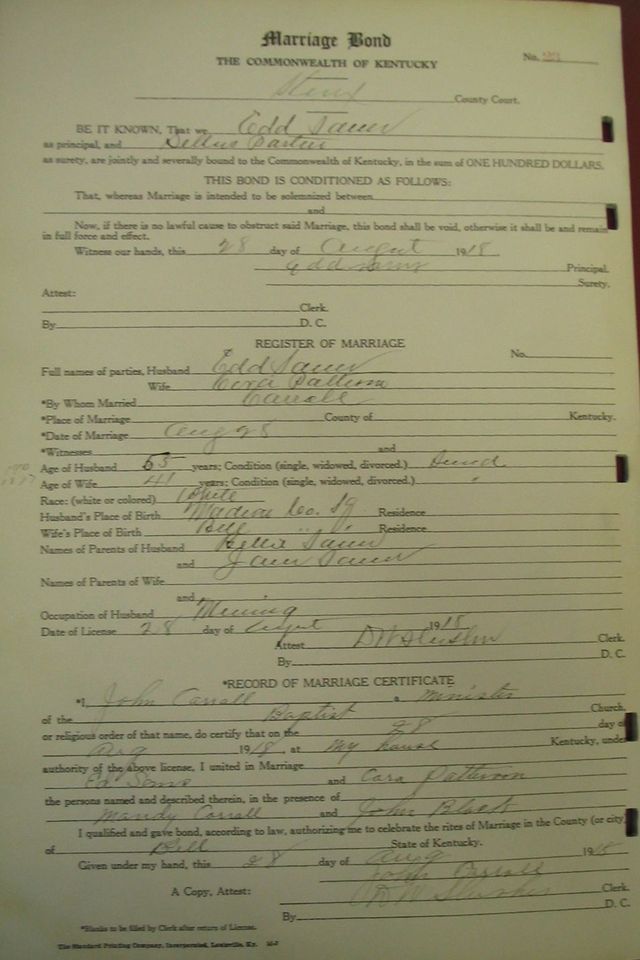 Marriage Bond
THE COMMONWEALTH OF KENTUCKY
No.
County Court.
BE IT KNOWN, That we Edd
as principal, and
as surety, are jointly and severally bound to the Commonwealth of Kentucky, in the sum of ONE HUNDRED DOLLARS.
THIS BOND IS CONDITIONED AS FOLLOWS:
That, whereas Marriage is intended to be solemnized between
and
Now, if there is no lawful cause to obstruct said Marriage, this bond shall be void, otherwise it shall be and remain
in full force and effect.
Witness our hands, this 28 day of August 1918
Edd Principal.
Surety.
Attest:
Clerk.
By D. C.
REGISTER OF MARRIAGE
No.
Full names of parties, Husband Edd
Wife
*By Whom Married Carroll
*Place of Marriage County of Kentucky.
*Date of Marriage Aug 28
*Witnesses and
Age of Husband 55 years; Condition (single, widowed, divorced.)
Age of Wife 41 years; Condition (single, widowed, divorced.) "
Race: (white or colored) White
Husband's Place of Birth Residence
Wife's Place of Birth Bell " " Residence
Names of Parents of Husband
and
Names of Parents of Wife
and
Occupation of Husband Mining
Date of License 28 day of August 1918
Attest Clerk.
By D. C.
*RECORD OF MARRIAGE CERTIFICATE
*I, John Carroll a minister
of the Baptist Church,
or religious order of that name, do certify that on the 28 day of
Aug 1918, at my house Kentucky, under
authority of the above license, I united in Marriage
Ed Sams and Cora Patterson
the persons named and described therein, in the presence of
Mandy Carroll and John Black
I qualified and gave bond, according to law, authorizing me to celebrate the rites of Marriage in the County (or city)
of Bell State of Kentucky.
Given under my hand, this 28 day of Aug 1918
John Carroll
A Copy, Attest: Clerk.
By D. C.
*Blanks to be filled by Clerk after return of License.
The Standard Printing Company, Incorporated, Louisville, Ky.